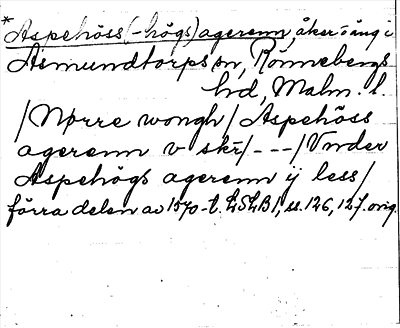 *Aspehöss(-högs)agerenn, åker i äng i
Asmundtorps sn, Rönnebergs
hd, Malm. l.
/Nørre wongh/ Aspehöss
agerenn v skr̄/---/Vnder
Aspehögs agerenn ij less/
förra delen av 1570-t. LSLB1, ss. 126, 127. orig.